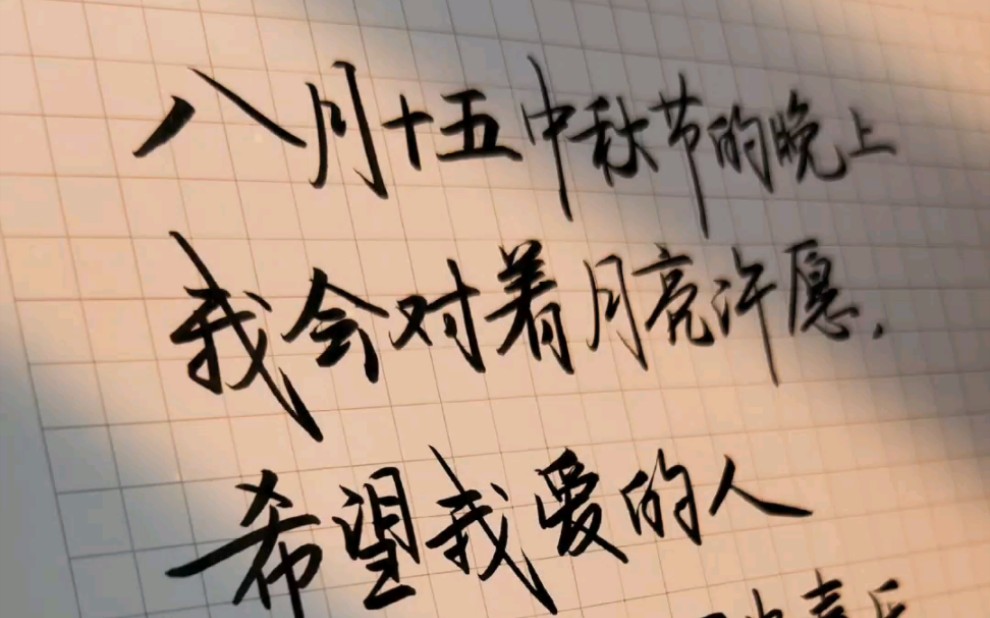 八月十五中秋节的晚上
我会对着月亮许愿.
希望我爱的人